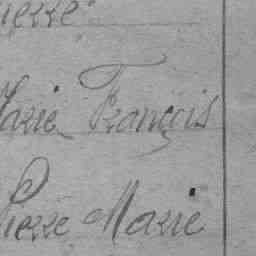 Pierre
Marie François
Pierre Marie